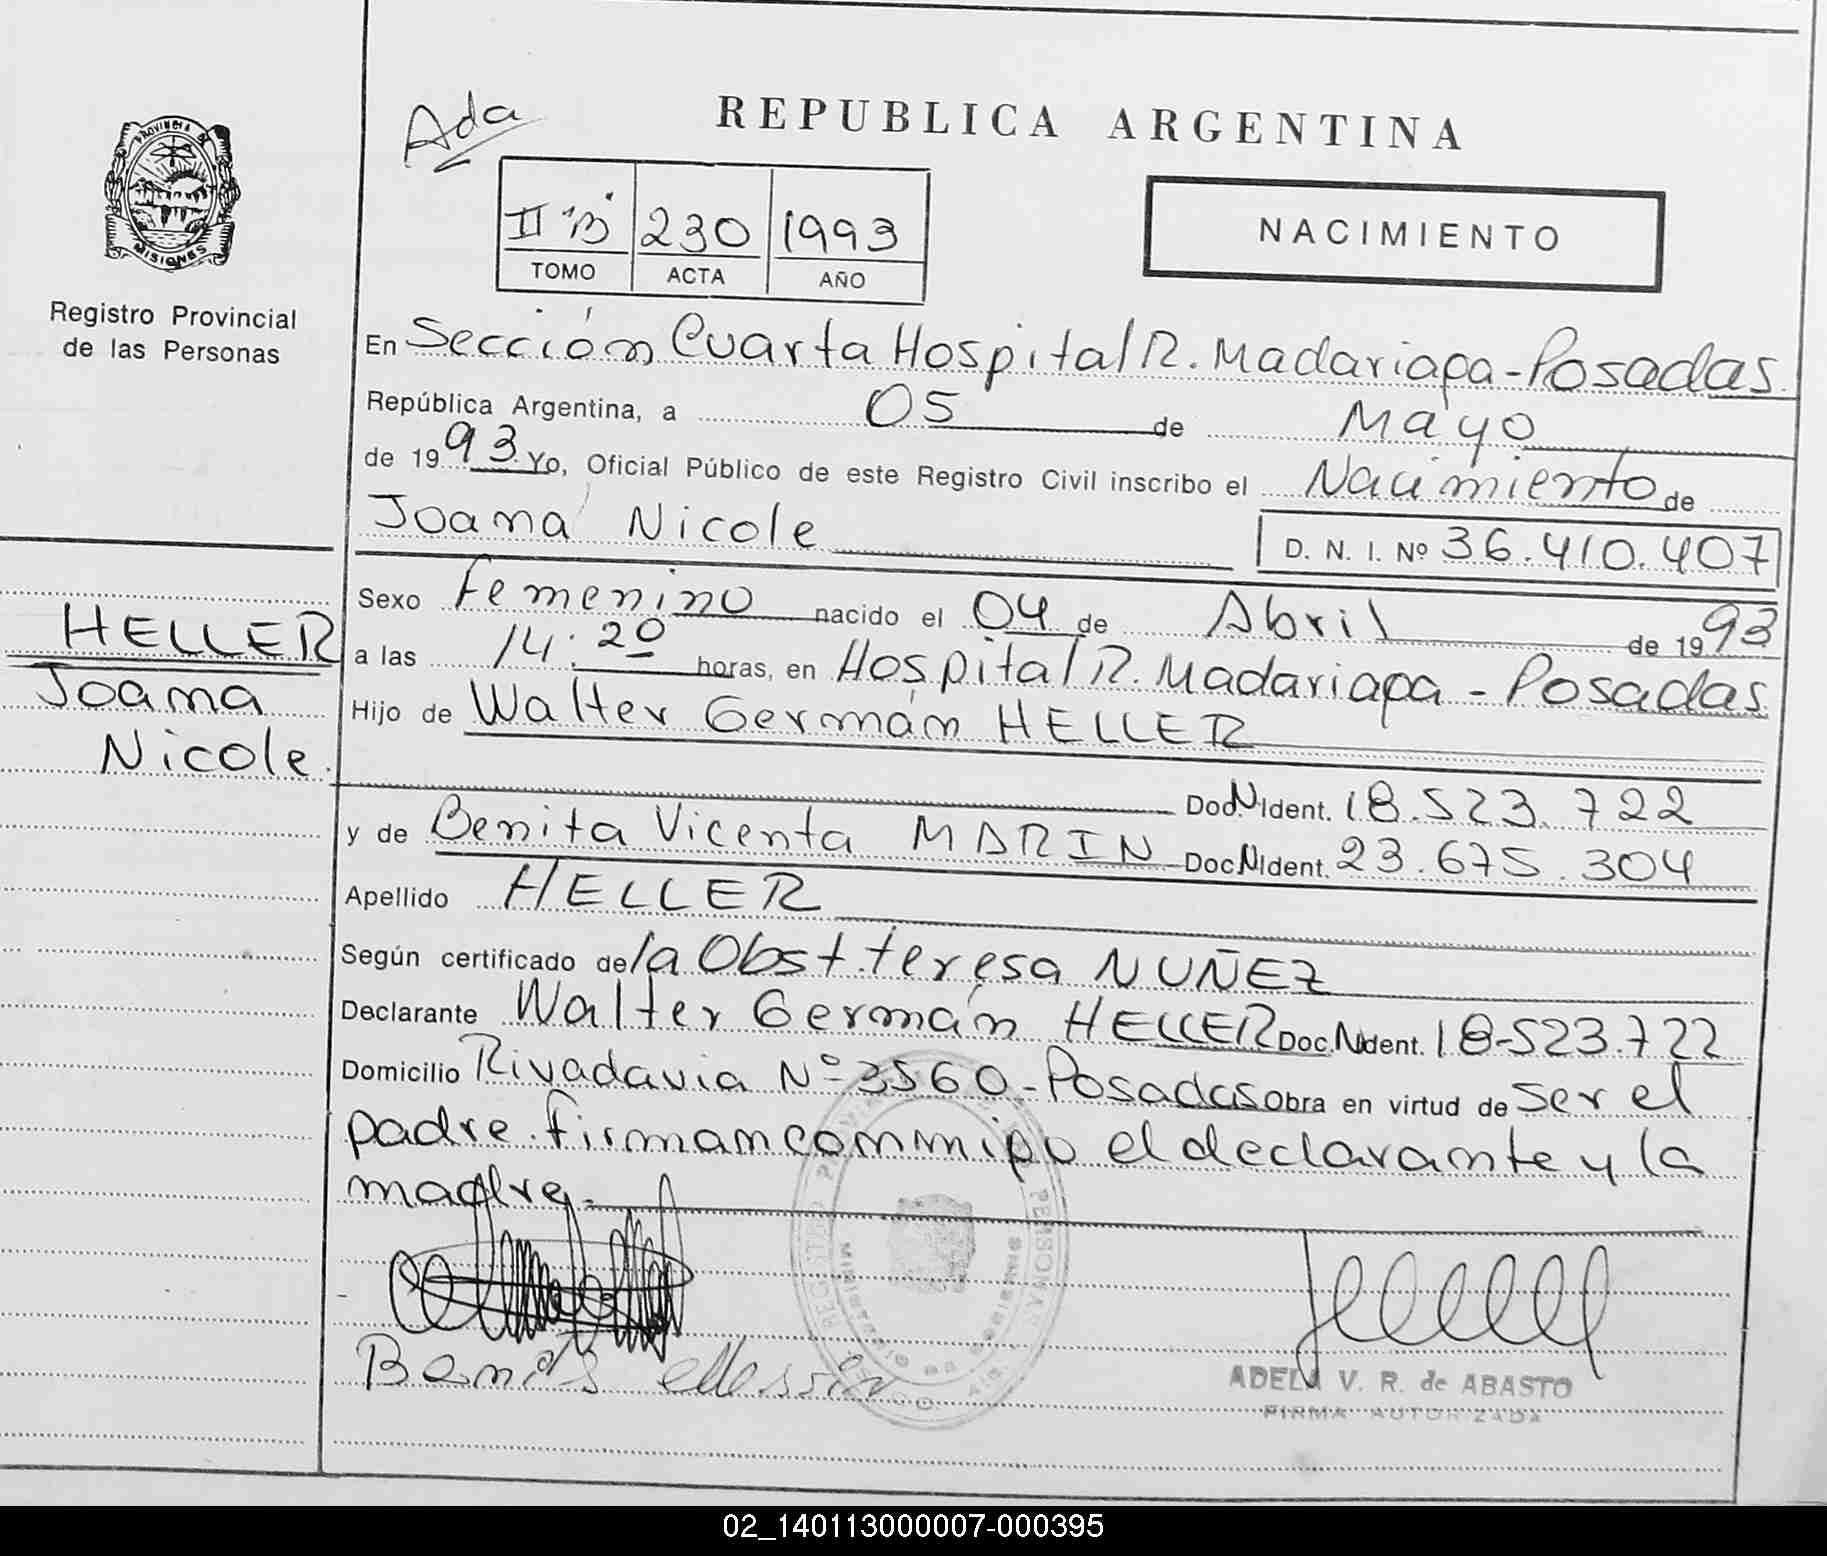 Ada
REPUBLICA ARGENTINA
PROVINCIA DE
MISIONES
II "B" 230 1993
TOMO ACTA AÑO
NACIMIENTO
Registro Provincial
de las Personas
En Sección Cuarta Hospital R. Madariaga - Posadas
República Argentina, a 05 de Mayo
de 1993 Yo, Oficial Público de este Registro Civil inscribo el Nacimiento de
Joana Nicole D. N. I. Nº 36.410.407
HELLER
Joana
Nicole.
Sexo Femenino nacido el 04 de Abril de 1993
a las 14:20 horas, en Hospital R. Madariaga - Posadas
Hijo de Walter Germán HELLER
Doc.N.Ident. 18.523.722
y de Benita Vicenta MARIN Doc.N.Ident. 23.675.304
Apellido HELLER
Según certificado de la Obst. teresa NUÑEZ
Declarante Walter Germán HELLER Doc.N.Ident. 18-523.722
Domicilio Rivadavia Nº 3560 - Posadas Obra en virtud de ser el
padre. firman conmigo el declarante y la
madre.-
ADELA V. R. de ABASTO
FIRMA AUTORIZADA
02_140113000007-000395